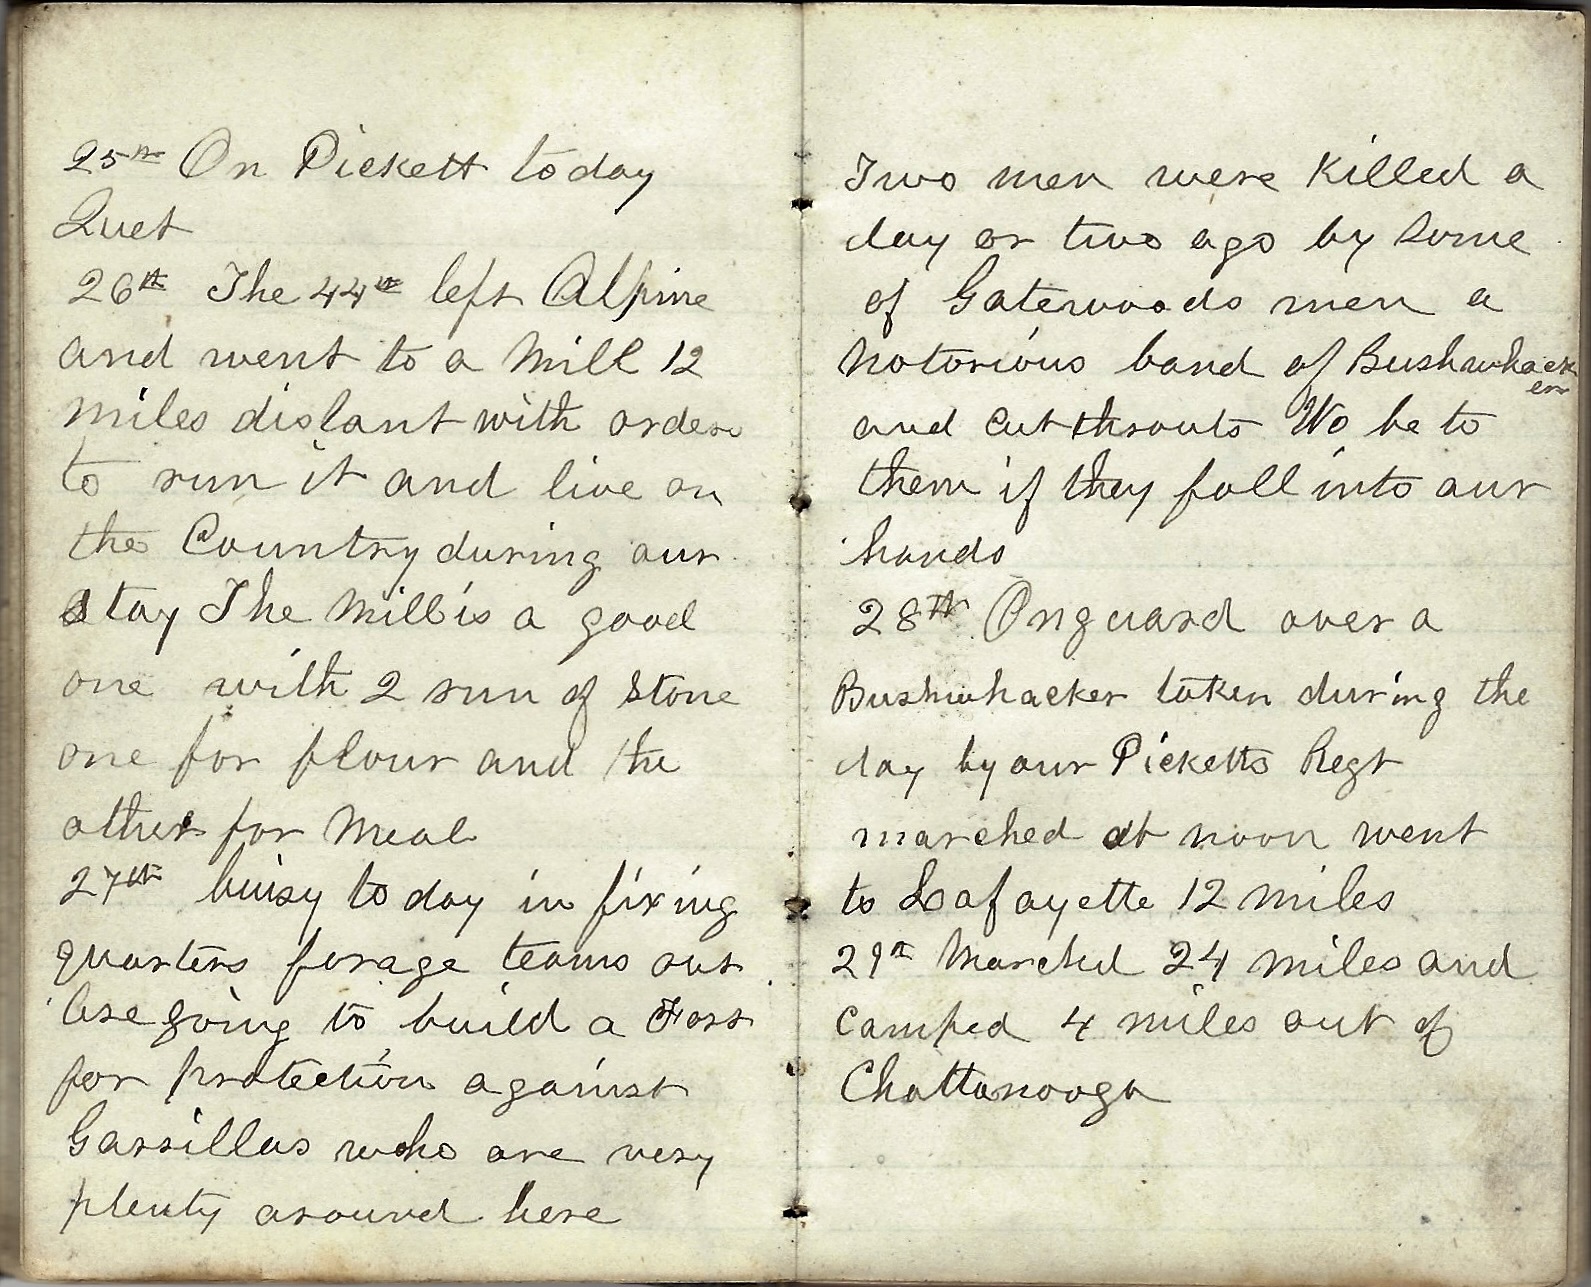 25th On Pickett today
Quet
26th The 44th left Alpine
and went to a Mill 12
miles distant with orders
to run it and live on
the Country during our
stay The Mill is a good
one with 2 run of Stone
one for flour and the
other for Meal
27th buisy to day in fixing
quarters forage teams out
Are going to build a Fort
for protection against
Garrillas who are very
plenty around here
Two men were Killed a
day or two ago by Some
of Gatewoods men a
Notorious band of Bushwhackers
and Cut throuts Wo be to
them if they fall into our
hands
28th On guard over a
Bushwhacker taken during the
day by our Picketts Regt
marched at noon went
to Lafayette 12 miles
29th Marched 24 miles and
Camped 4 miles out of
Chattanooga